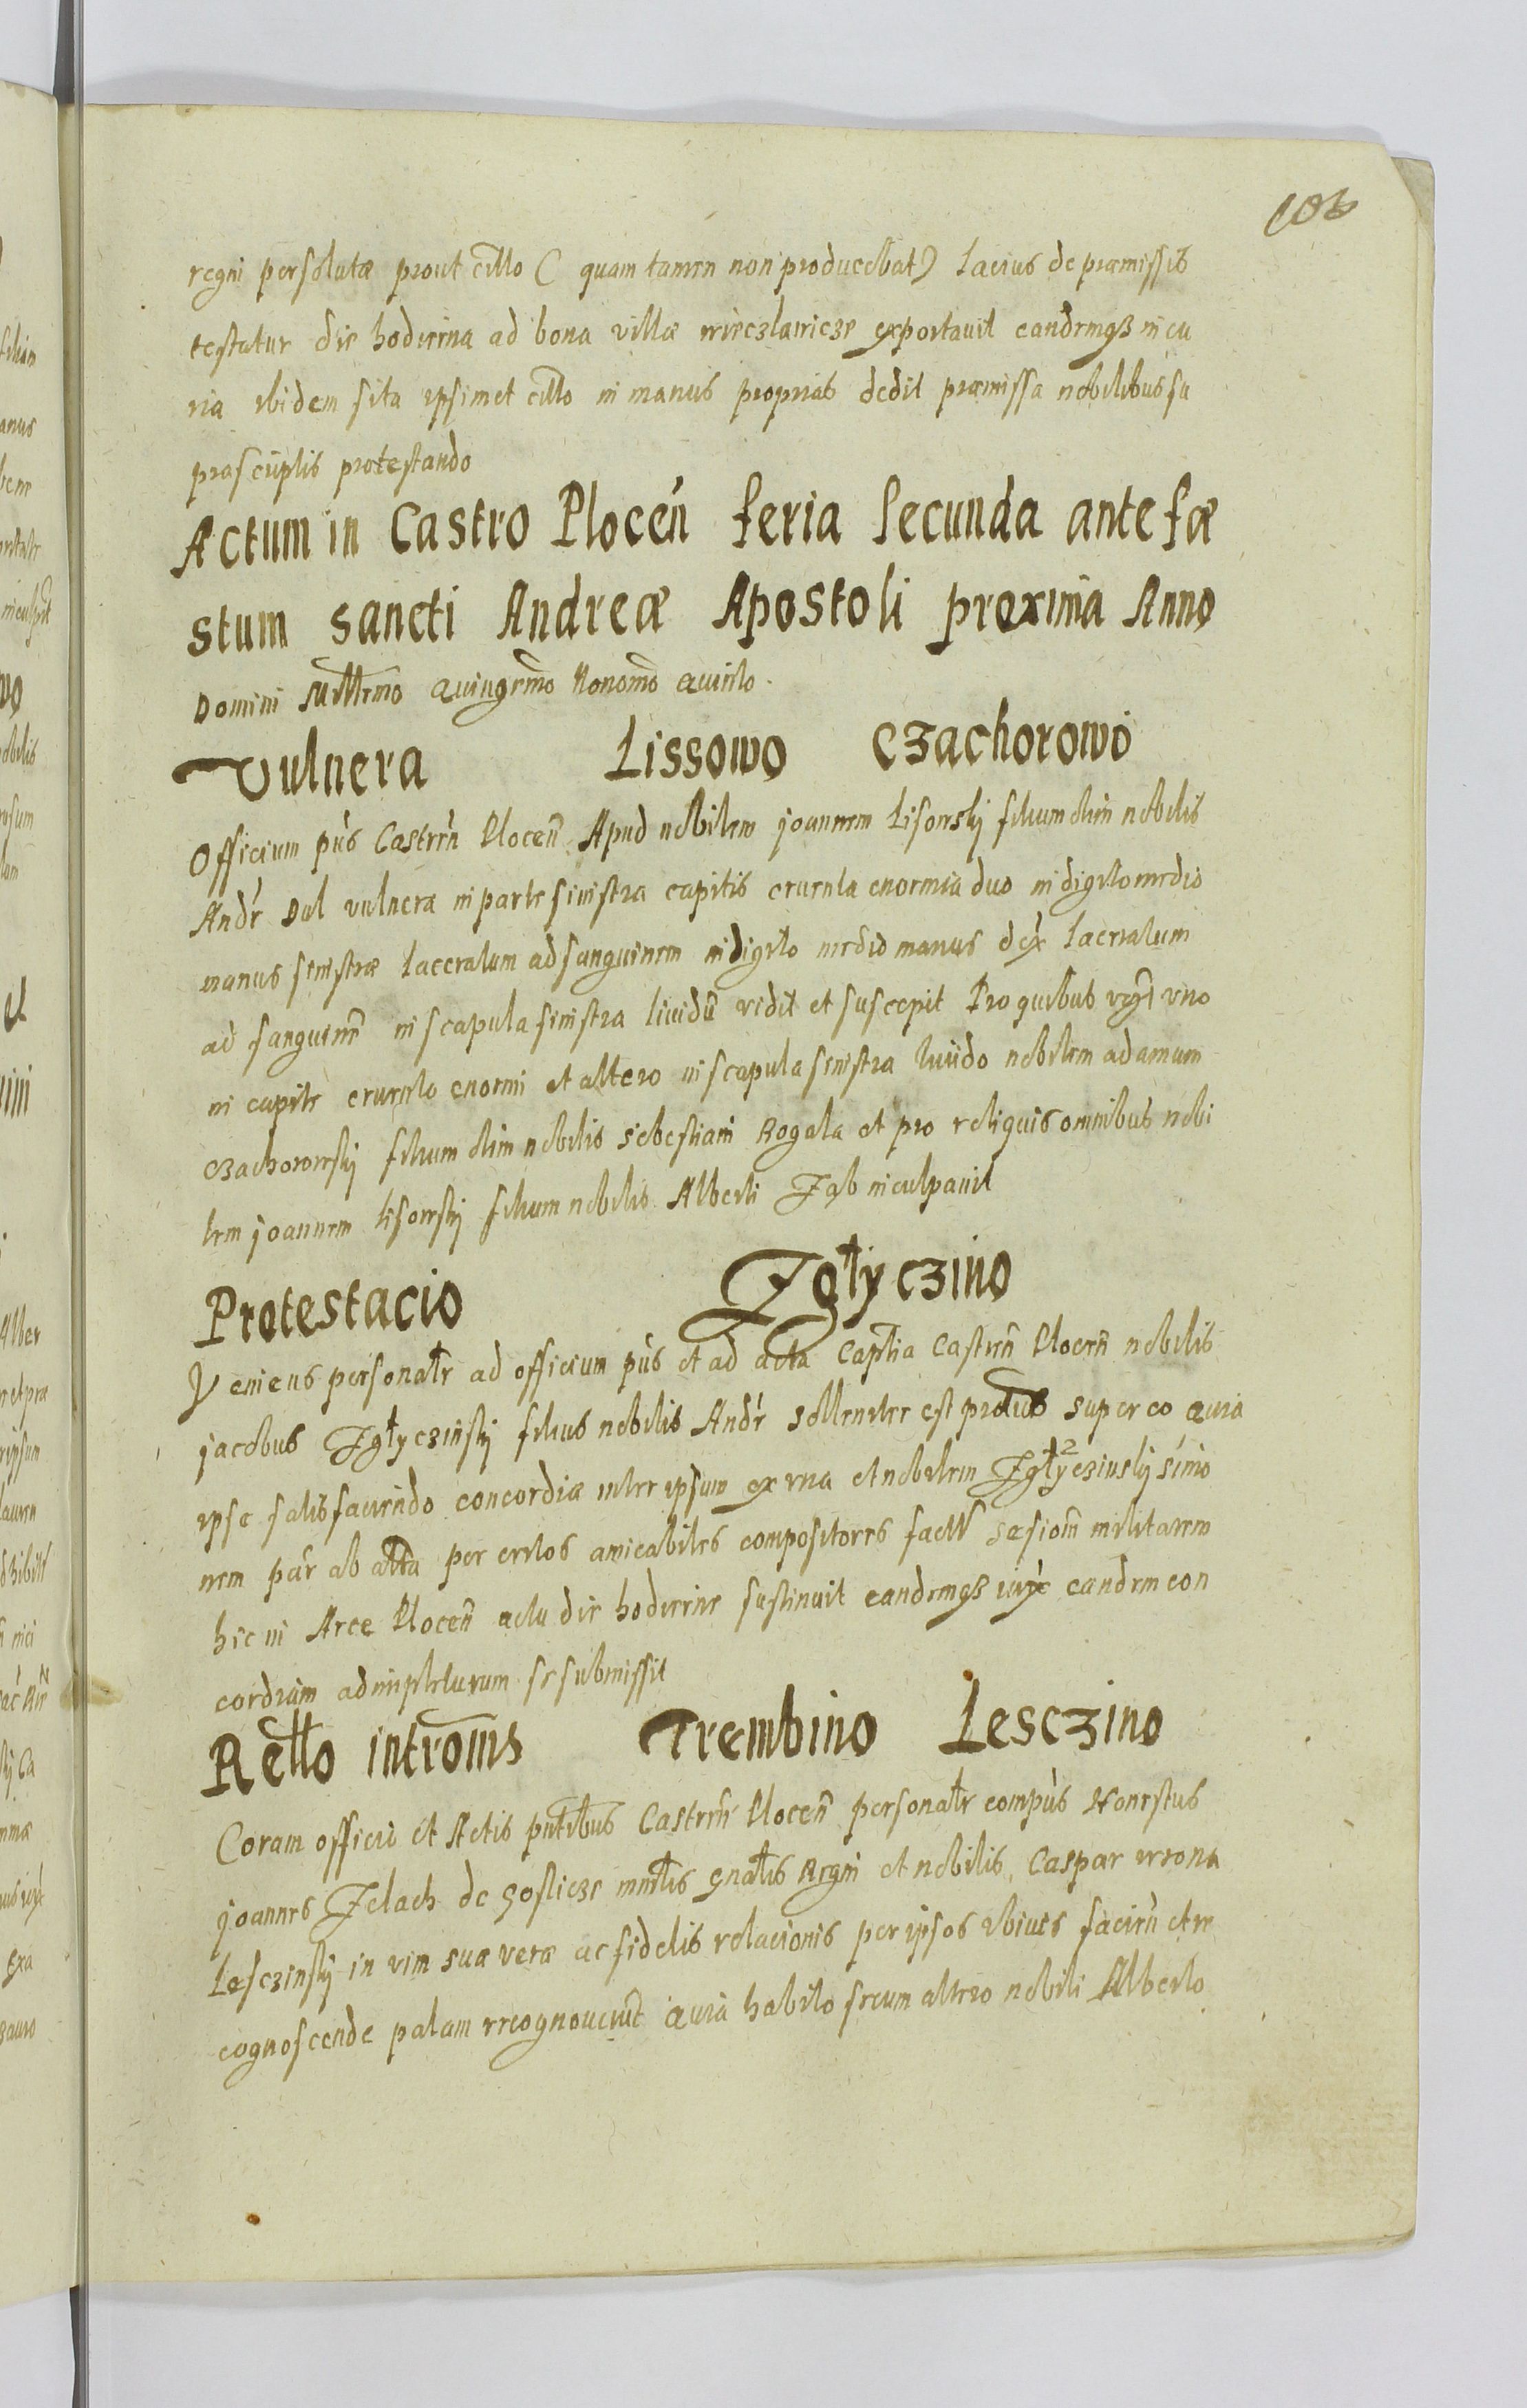 106
regni persolutæ prout cittõ ( quam tamen non producebat ) Lacius de præmissis
testatur die hodierna ad bona villæ mieczlawicze exportauit eandemq3 in cu
ria ibidem sita ipsimet cittõ in manus proprias dedit præmissa nobilibus su
prascriptis protestando
Actum in Castro Plocen̄ feria secunda ante fæ
stum sancti Andreæ Apostoli proxima Anno
Domini Millēmo Quingemõ Nonomõ Quinto.
Vulnera Lissowo Czachorowo
Officium pñs Castren̄ Plocen̄ Apud nobilem joannem Lisowskj filium olim nobilis
Andr̄ Dul vulnera in parte sinistra capitis cruenta enormia duo in digito medio
manus sinistræ Laceratum ad sanguinem in digito medio manus dex̄ Laceratum
ad sanguinem̄ in scapula sinistra liuidū vidit et suscepit Pro quibus uno
in capite cruento enormi et altero in scapula sinistra liuido nobilem adamum
czachorowskij filium olim nobilis sebestiani Rogala et pro reliquis omnibus nobi
lem joannem Lisowskij filium nobilis Alberti inculpauit
Protestacio Zglyczino
Veniens personatr ad officium pñs et ad acta Captlia Castren̄ Plocen̄ nobilis
jacobus Zglyczinskij filius nobilis Andr̄ sollenniter est super eo Quia
ipse satisfaciendo concordiæ inter ipsum ex vna et nobilem Zglyczinskij simo
nem par̄ ab altā per certos amicabiles compositores sæsionē militarem
hic in Arce Plocen̄ actu die hodierne sustinuit eandemq3 iux̄ eandem con
cordiam adimpleturum se submissit
Retlõ intromis̄ Trembino Lesczino
Coram officio et Actis pntibus Castren̄ Plocen̄ personatr compñs Honestus
joannes Zelach de gosticze mnrlis gnalis Regni et nobilis Caspar wrona
Lesczinskij in vim suæ veræ ac fidelis relacionis per ipsos ibius faciēn et re
cognoscende palam recognouerūt Quia habito secum altero nobili Alberto